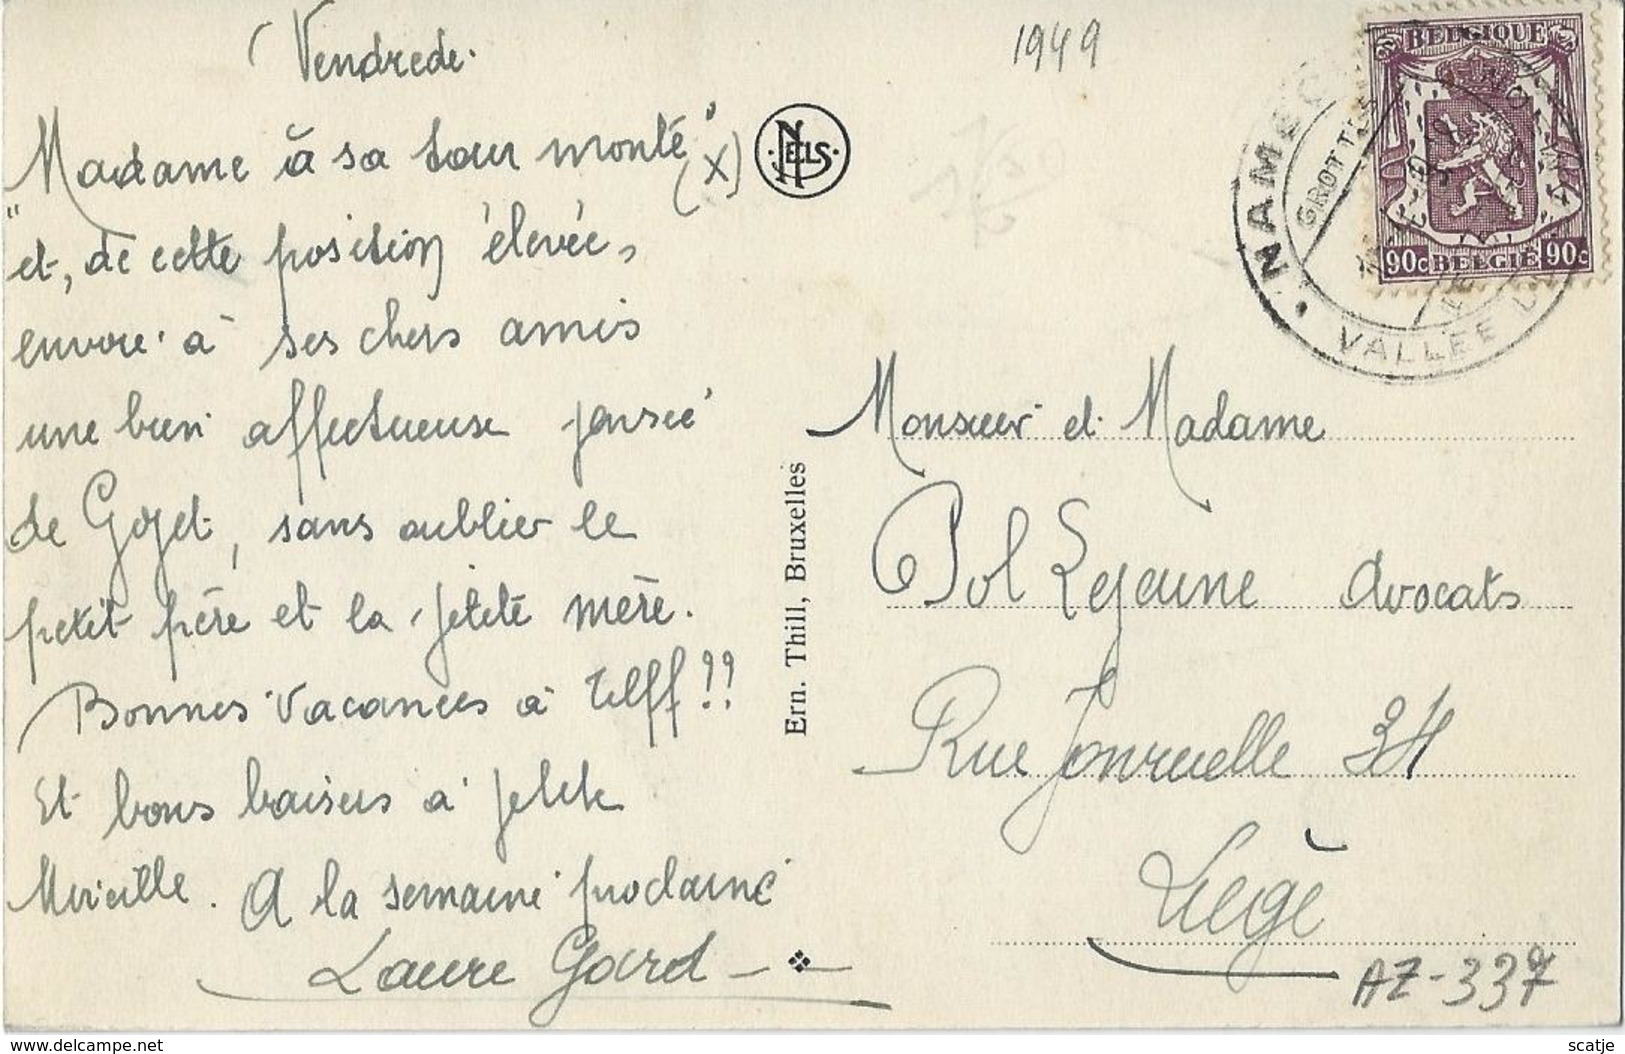 Vendredi
1949
"Madame à sa tour monte" (x)
et, de cette position élevée,
envoie à ses chers amis
une bien affectueuse pensée
de Goyet, sans oublier le
petit père et la petite mère.
Bonnes Vacances à Tilff!!
Et bons baisers à petite
Mireille. A la semaine prochaine
Laure
NELS
Ern. Thill, Bruxelles
BELGIQUE
90c BELGIË 90c
NAMEC
GROTTES
VALLÉE
Monsieur et Madame
Pol Lejeune Avocats
Rue Fonruelle 34
Liège
AZ-337
delcampe.net
scatje